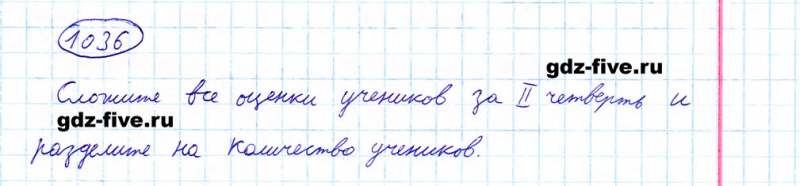 1036
gdz-five.ru
Сложите все оценки учеников за II четверть и
gdz-five.ru
разделите на количество учеников.